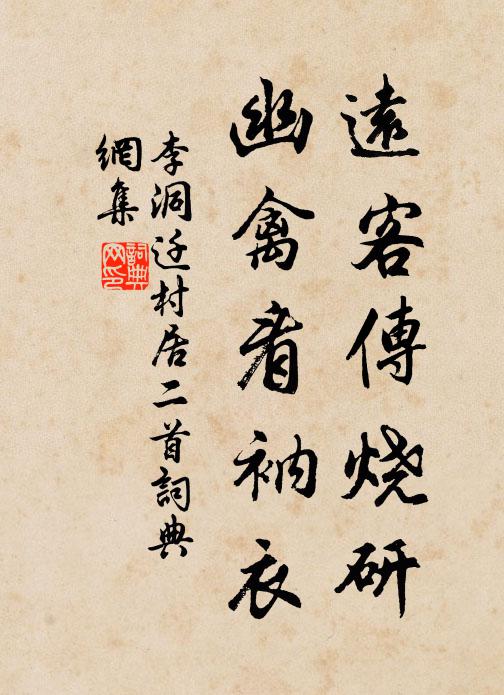 遠客傳烧研
幽禽看衲衣
李洞迁村居二首詞典
網集
詞典
网印